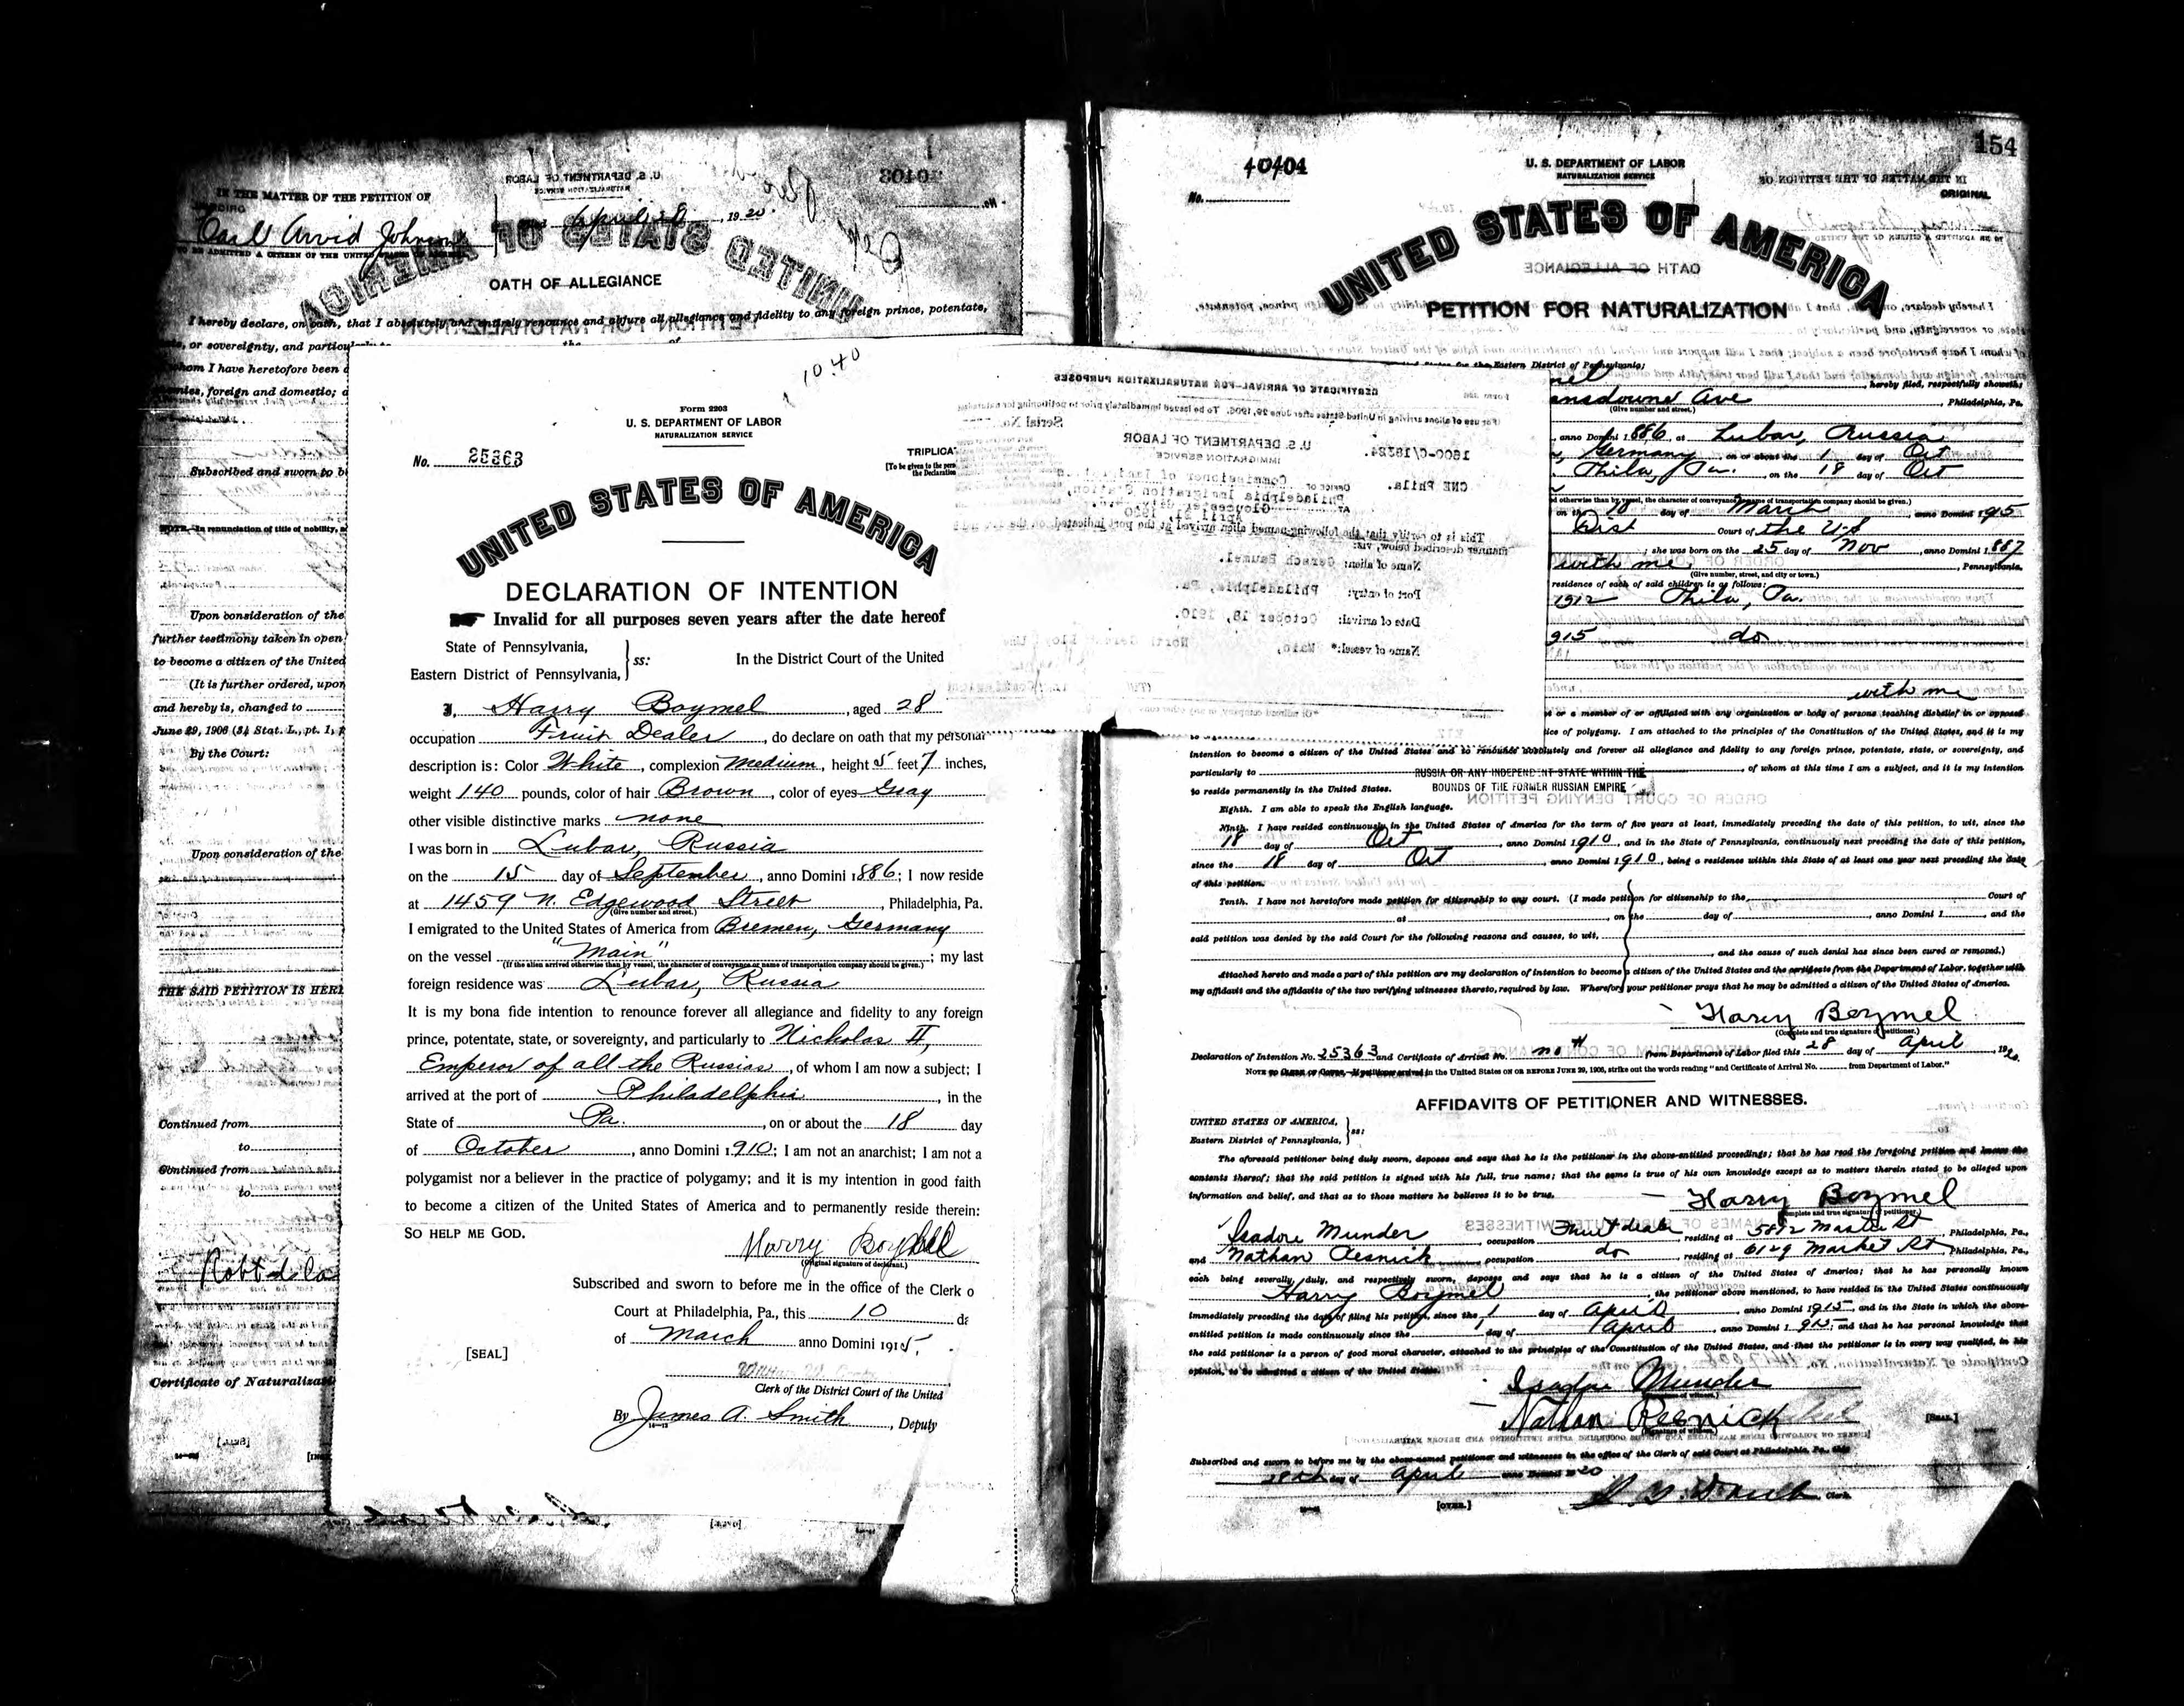 IN THE MATTER OF THE PETITION OF
Carl Arvid Johnson
April 28, 1920.
TO BE ADMITTED A CITIZEN OF THE UNITED STATES OF AMERICA
OATH OF ALLEGIANCE
I hereby declare, on oath, that I absolutely and entirely renounce and abjure all allegiance and fidelity to any foreign prince, potentate,
or sovereignty, and particularly to
whom I have heretofore been
foreign and domestic;
Subscribed and sworn to b
NOTE.—In renunciation of title of nobility,
Upon consideration of the
further testimony taken in open
to become a citizen of the United
(It is further ordered, upon
and hereby is, changed to
June 29, 1906 (34 Stat. L., pt. 1,
By the Court:
Upon consideration of the
THE SAID PETITION IS HERE
Continued from
to
Continued from
to
Certificate of Naturaliza
10.40
Form 2203
U. S. DEPARTMENT OF LABOR
NATURALIZATION SERVICE
No. 25363
TRIPLICA
[To be given to the pers
the Declaration
UNITED STATES OF AMERICA
DECLARATION OF INTENTION
Invalid for all purposes seven years after the date hereof
State of Pennsylvania,
Eastern District of Pennsylvania,
ss:
In the District Court of the United
I, Harry Boymel, aged 28
occupation Fruit Dealer, do declare on oath that my personal
description is: Color White, complexion Medium, height 5 feet 7 inches,
weight 140 pounds, color of hair Brown, color of eyes Gray
other visible distinctive marks none
I was born in Lubar, Russia
on the 15 day of September, anno Domini 1886; I now reside
at 1459 N. Edgewood Street, Philadelphia, Pa.
(Give number and street.)
I emigrated to the United States of America from Bremen, Germany
on the vessel "Main"; my last
(If the alien arrived otherwise than by vessel, the character of conveyance or name of transportation company should be given.)
foreign residence was Lubar, Russia
It is my bona fide intention to renounce forever all allegiance and fidelity to any foreign
prince, potentate, state, or sovereignty, and particularly to Nicholas II,
Emperor of all the Russias, of whom I am now a subject; I
arrived at the port of Philadelphia, in the
State of Pa., on or about the 18 day
of October, anno Domini 1910; I am not an anarchist; I am not a
polygamist nor a believer in the practice of polygamy; and it is my intention in good faith
to become a citizen of the United States of America and to permanently reside therein:
SO HELP ME GOD.
Harry Boymel
(Original signature of declarant.)
Subscribed and sworn to before me in the office of the Clerk o
Court at Philadelphia, Pa., this 10 da
of March anno Domini 1915.
[SEAL]
Clerk of the District Court of the United
By James A. Smith, Deputy
CERTIFICATE OF ARRIVAL—FOR NATURALIZATION PURPOSES
For use of aliens arriving in United States after June 29, 1906. To be issued immediately prior to petitioning for naturalization
Serial No.
U.S. DEPARTMENT OF LABOR
IMMIGRATION SERVICE
1600-C/18324.
CNE Phila.
OFFICE OF Commissioner of
Philadelphia Immigration Station,
This is to certify that the following-named alien arrived at the port indicated, on the
manner described below, viz:
Name of alien: Gersch Baumel.
Port of entry: Philadelphia, Pa.
Date of arrival: October 18, 1910.
Name of vessel:
154
40404
No.
U. S. DEPARTMENT OF LABOR
NATURALIZATION SERVICE
ORIGINAL
UNITED STATES OF AMERICA
PETITION FOR NATURALIZATION
for the Eastern District of Pennsylvania:
mel, hereby filed, respectfully showeth:
ansdowne Ave, Philadelphia, Pa.
(Give number and street.)
, anno Domini 1886, at Lubar, Russia
Germany on or about the 1 day of Oct
Phila, Pa. on the 18 day of Oct
otherwise than by vessel, the character of conveyance or name of transportation company should be given.)
on the 10 day of March, anno Domini 1915
Dist Court of the U.S
; she was born on the 25 day of Nov, anno Domini 1887
with me, Pennsylvania.
(Give number, street, and city or town.)
residence of each of said children is as follows:
1912 Phila, Pa.
915 do
with me
or a member of or affiliated with any organization or body of persons teaching disbelief in or opposed
tice of polygamy. I am attached to the principles of the Constitution of the United States, and it is my
intention to become a citizen of the United States and to renounce absolutely and forever all allegiance and fidelity to any foreign prince, potentate, state, or sovereignty, and
particularly to RUSSIA OR ANY INDEPENDENT STATE WITHIN THE, of whom at this time I am a subject, and it is my intention
to reside permanently in the United States. BOUNDS OF THE FORMER RUSSIAN EMPIRE
Eighth. I am able to speak the English language.
Ninth. I have resided continuously in the United States of America for the term of five years at least, immediately preceding the date of this petition, to wit, since the
18 day of Oct, anno Domini 1910, and in the State of Pennsylvania, continuously next preceding the date of this petition,
since the 18 day of Oct, anno Domini 1910, being a residence within this State of at least one year next preceding the date
of this petition.
Tenth. I have not heretofore made petition for citizenship to any court. (I made petition for citizenship to the Court of
at, on the day of, anno Domini 1, and the
said petition was denied by the said Court for the following reasons and causes, to wit,
, and the cause of such denial has since been cured or removed.)
Attached hereto and made a part of this petition are my declaration of intention to become a citizen of the United States and the certificate from the Department of Labor, together with
my affidavit and the affidavits of the two verifying witnesses thereto, required by law. Wherefore your petitioner prays that he may be admitted a citizen of the United States of America.
Harry Boymel
(Complete and true signature of petitioner.)
Declaration of Intention No. 25363 and Certificate of Arrival No. from Department of Labor filed this 28 day of April, 1920
NOTE TO CLERK OF COURT.—If petitioner arrived in the United States ON OR BEFORE JUNE 29, 1906, strike out the words reading "and Certificate of Arrival No. from Department of Labor."
AFFIDAVITS OF PETITIONER AND WITNESSES.
UNITED STATES OF AMERICA,
Eastern District of Pennsylvania,
ss:
The aforesaid petitioner being duly sworn, deposes and says that he is the petitioner in the above-entitled proceedings; that he has read the foregoing petition and knows the
contents thereof; that the said petition is signed with his full, true name; that the same is true of his own knowledge except as to matters therein stated to be alleged upon
information and belief, and that as to those matters he believes it to be true.
Harry Boymel
(Complete and true signature of petitioner.)
Isadore Munder, occupation Fruit dealer, residing at 5892 Master St, Philadelphia, Pa.,
and Nathan Resnick, occupation do, residing at 6129 Market St, Philadelphia, Pa.,
each being severally, duly, and respectively sworn, deposes and says that he is a citizen of the United States of America; that he has personally known
Harry Boymel, the petitioner above mentioned, to have resided in the United States continuously
immediately preceding the date of filing his petition, since the 1 day of April, anno Domini 1915, and in the State in which the above-
entitled petition is made continuously since the day of April, anno Domini 1915; and that he has personal knowledge that
the said petitioner is a person of good moral character, attached to the principles of the Constitution of the United States, and that the petitioner is in every way qualified, in his
opinion, to be admitted a citizen of the United States.
Isadore Munder
Nathan Resnick
(Signature of witness.)
[SEAL.]
Subscribed and sworn to before me by the above-named petitioner and witnesses in the office of the Clerk of said Court at Philadelphia, Pa., this
28th day of April anno Domini 1920
Clerk.
[OVER.]